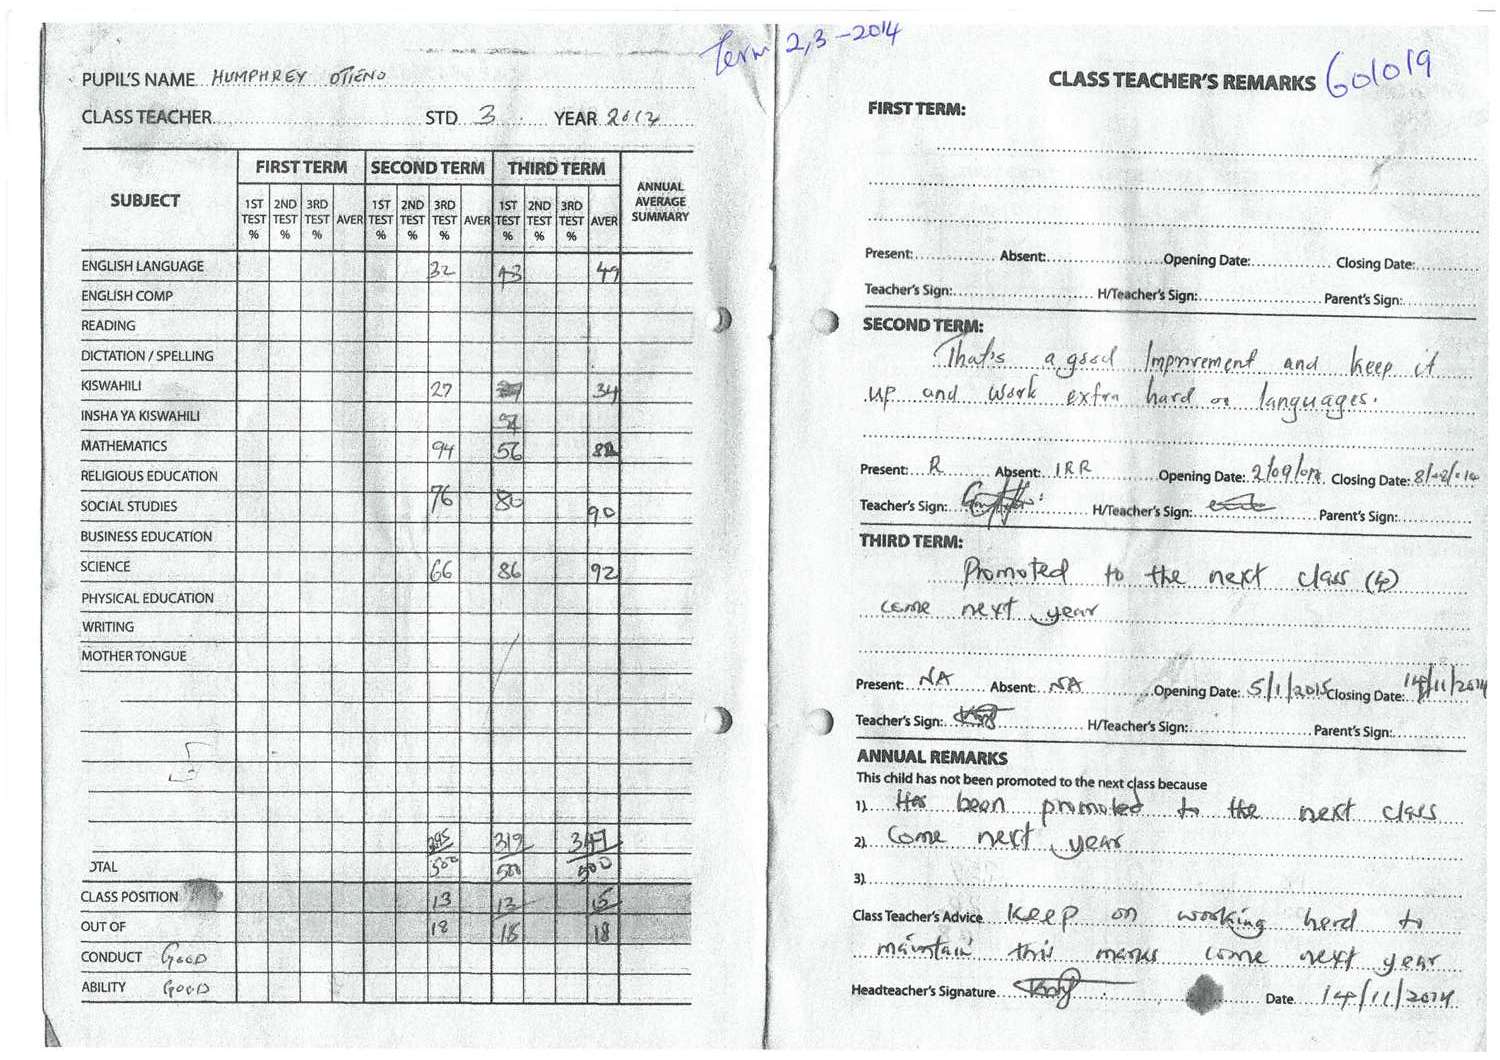 Term 2,3 - 2014
PUPIL'S NAME HUMPHREY OTIENO
CLASS TEACHER STD 3 YEAR 2014
SUBJECT FIRST TERM SECOND TERM THIRD TERM ANNUAL AVERAGE SUMMARY
1ST TEST % 2ND TEST % 3RD TEST % AVER 1ST TEST % 2ND TEST % 3RD TEST % AVER 1ST TEST % 2ND TEST % 3RD TEST % AVER
ENGLISH LANGUAGE 32 43 49
ENGLISH COMP
READING
DICTATION / SPELLING
KISWAHILI 27 34
INSHA YA KISWAHILI
MATHEMATICS 94 56
RELIGIOUS EDUCATION
SOCIAL STUDIES 76 80 90
BUSINESS EDUCATION
SCIENCE 66 86 92
PHYSICAL EDUCATION
WRITING
MOTHER TONGUE
295 319 347
OTAL 500 500 500
CLASS POSITION 13 13 15
OUT OF 18 18 18
CONDUCT GOOD
ABILITY GOOD
CLASS TEACHER'S REMARKS 601019
FIRST TERM:
Present: Absent: Opening Date: Closing Date:
Teacher's Sign: H/Teacher's Sign: Parent's Sign:
SECOND TERM:
That's a good Improvement and keep it
up and work extra hard on languages.
Present: R Absent: IRR Opening Date: 2/09/014 Closing Date: 8/08/014
Teacher's Sign: H/Teacher's Sign: Parent's Sign:
THIRD TERM:
Promoted to the next class (4)
come next year
Present: NA Absent: NA Opening Date: 5/1/2015 Closing Date: 14/11/2014
Teacher's Sign: H/Teacher's Sign: Parent's Sign:
ANNUAL REMARKS
This child has not been promoted to the next class because
1) Has been promoted to the next class
2) Come next year
3)
Class Teacher's Advice Keep on working hard to
maintain this marks come next year
Headteacher's Signature Date 14/11/2014